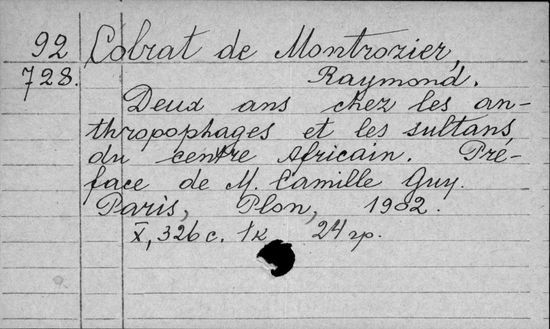 92 Colrat de Montrozier,
728. Raymond.
Deux ans chez les an-
thropophages et les sultans
du centre Africain. Pré-
face de M. Camille Guy.
Paris, Plon, 1902.
X, 326 c. 1 к 24 гр.